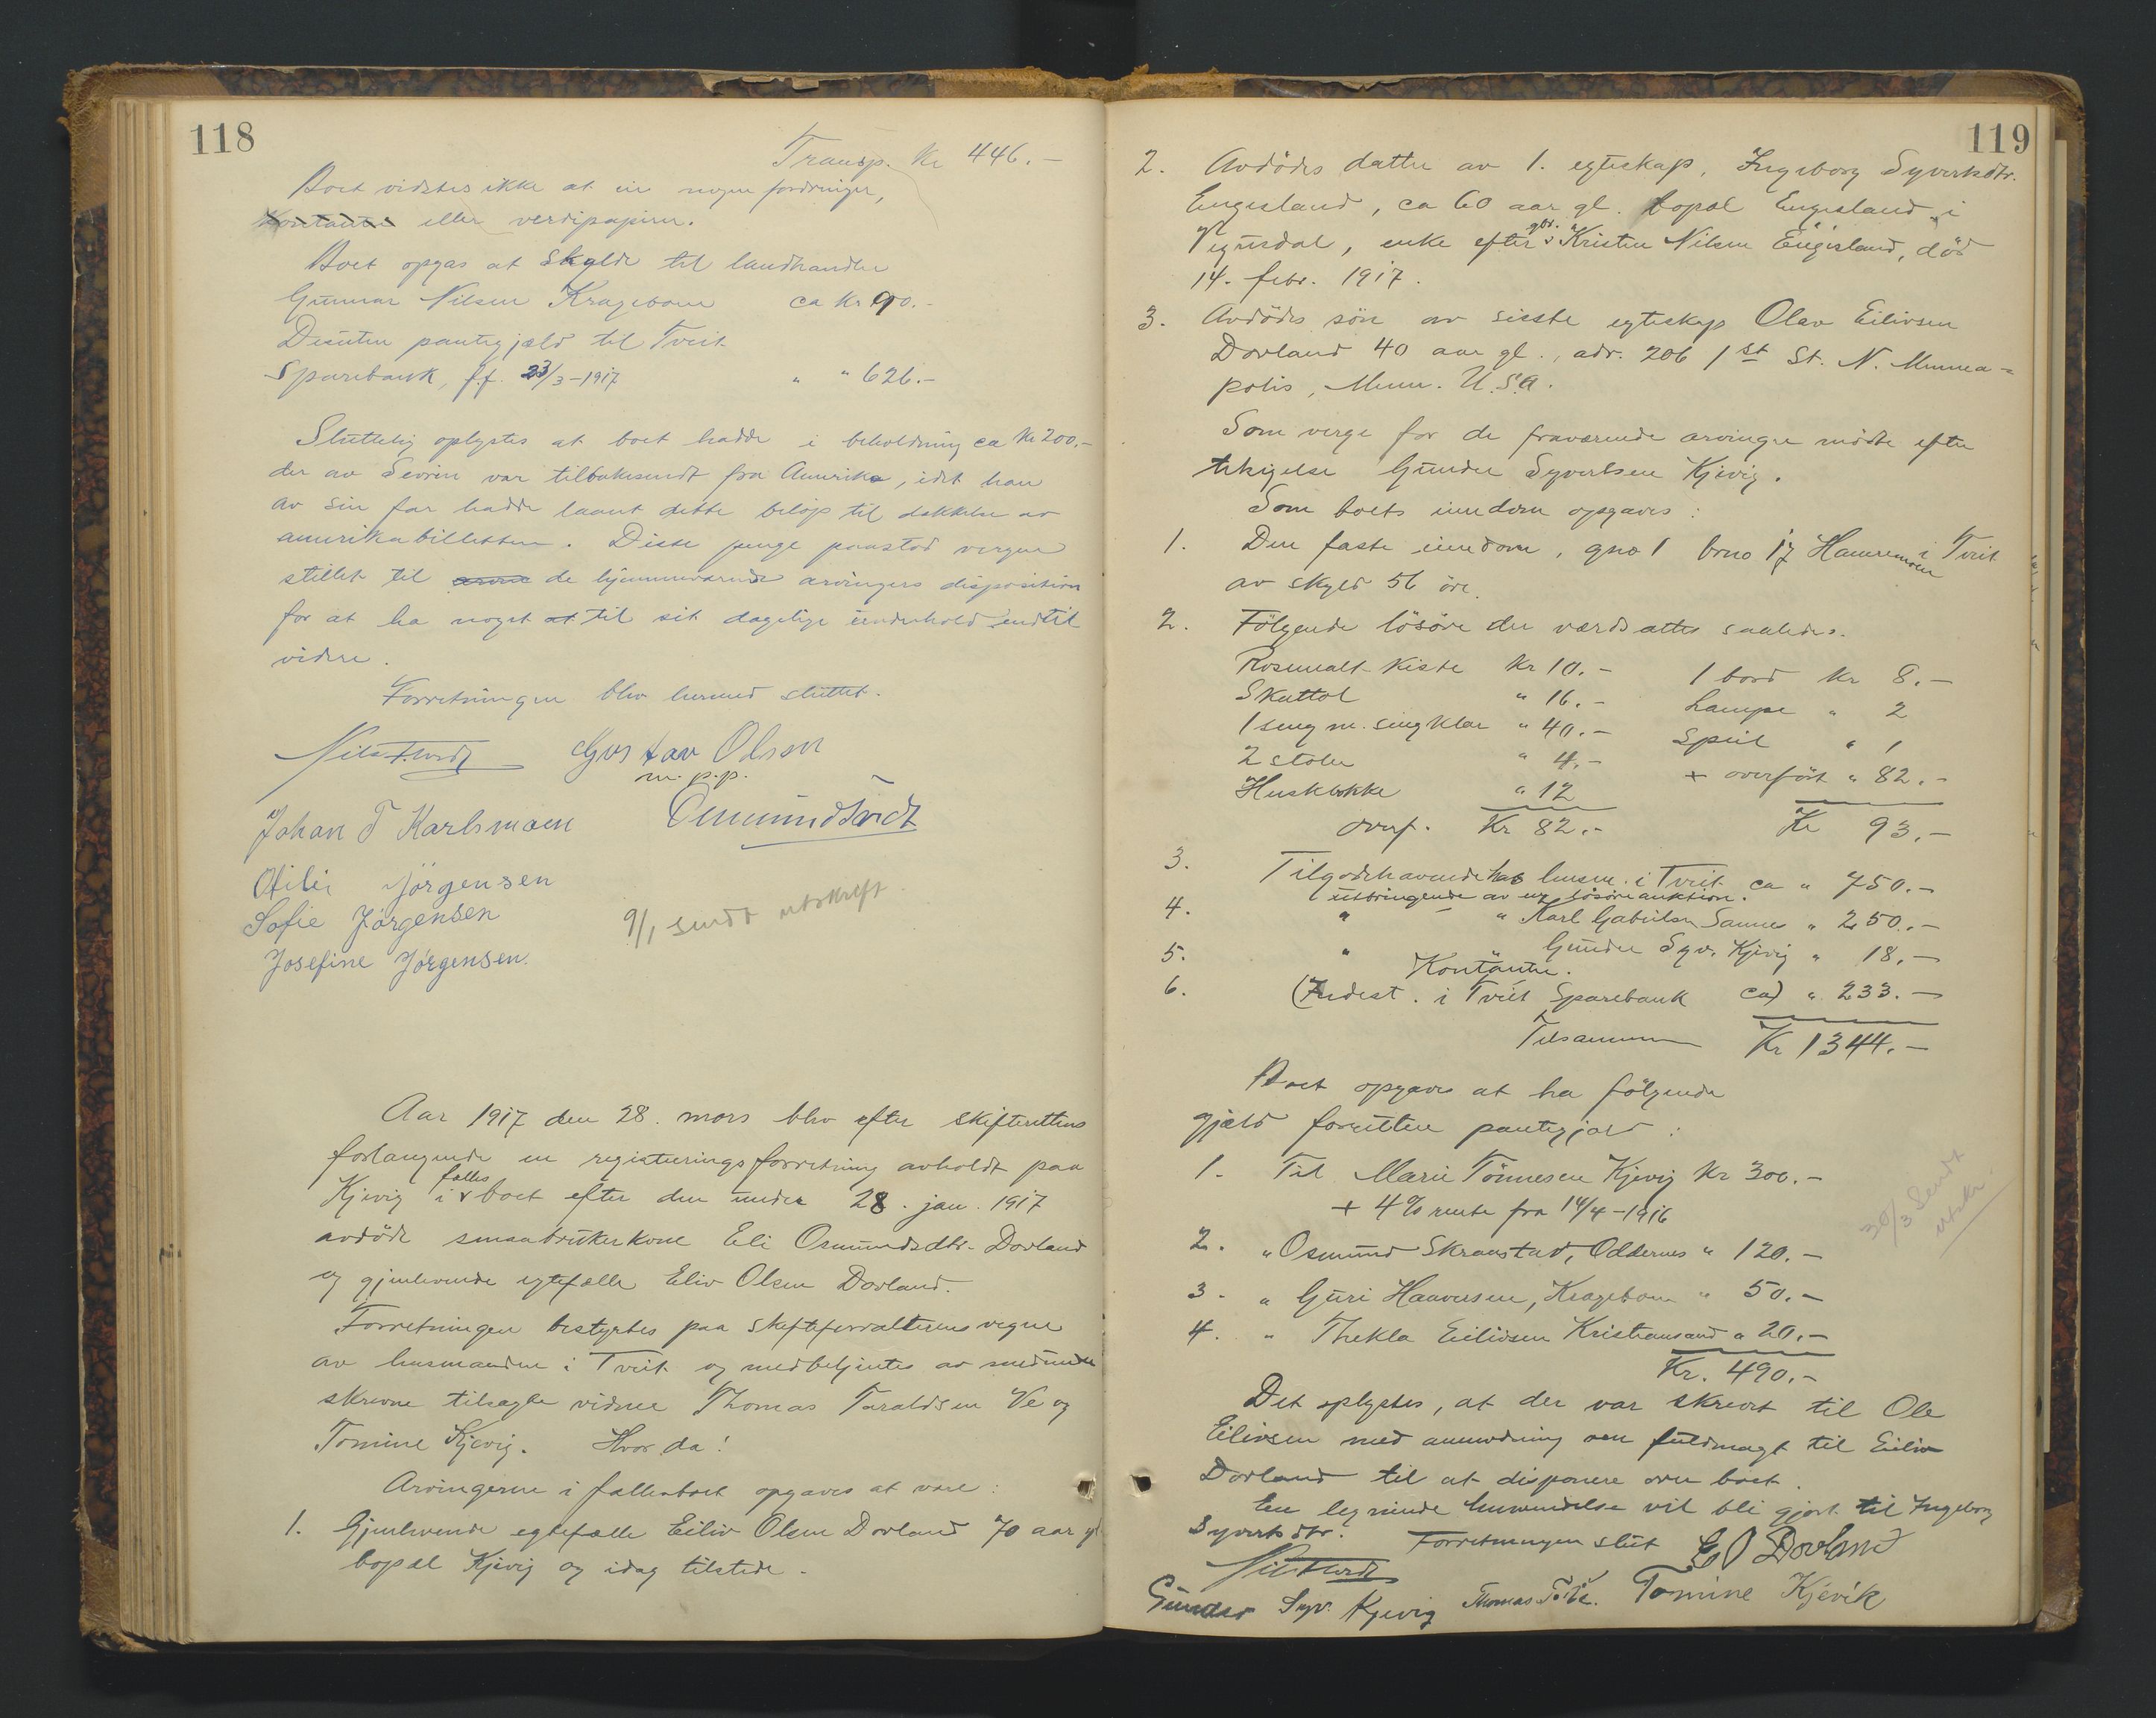 118
Transp. Kr 446.-
Boet vidstes ikke at eie nogen fordringer,
kontanter eller verdipapirer.
Boet opgas at skylde til landhandler
Gunnar Nilsen Kragebom ca Kr 90.-
Desuten pantegjæld til Tveit
Sparebank, f.f. 23/3-1917 " " 626.-
Sluttelig oplystes at boet hadde i beholdning ca Kr 200.-
der av Severin var tilbakesendt fra Amerika, idet han
av sin far hadde laant dette beløp til dekkelse av
amerikabilletten. Disse penge paastod vergen
stillet til de hjemmeværende arvingers disposition
for at ha noget at til sit dagelige underhold indtil
videre.
Forretningen blev hermed sluttet.
Nils Tveit Gustav Olsen
m.p.p.
Johan T Karlsmoen Omund Tveit
Otilie Jörgensen
Sofie Jørgensen
9/1 sendt utskrift.
Josefine Jørgensen.
Aar 1917 den 28. mars blev efter skifterettens
forlangende en registreringsforretning avholdt paa
Kjevig i fælles boet efter den under 28. jan. 1917
avdöde smaabrukerkone Eli Osmundsdtr. Dovland
og gjenlevende egtefælle Eiliv Olsen Dovland.
Forretningen bestyrtes paa skifteforvalterens vegne
av lensmanden i Tveit og medbetjentes av medunder
skrevne tilsagte vidner Thomas Taraldsen Ve og
Tomine Kjevig. Hvor da!
Arvingerne i fællesboet opgaves at være:
1. Gjenlevende egtefælle Eiliv Olsen Dovland 70 aar gl.
bopæl Kjevig og idag tilstede.
119
2. Avdödes datter av 1. egteskap, Ingeborg Syvertsdtr.
Engesland, ca 60 aar gl. bopæl Engesland i
Vegusdal, enke efter gbr. Kristen Nilsen Engesland, död
14. febr. 1917.
3. Avdödes sön av siste egteskap Olav Eilivsen
Dovland 40 aar gl., adr. 206 1st St. N. Minnea=
polis, Minn. U.S.A.
Som verge for de fraværende arvinger mödte efter
tilsigelse Gunder Syvertsen Kjevig.
Som boets eiendom opgaves:
1. Den faste eiendom, gno 1 brno 17 Hamremoen i Tveit
av skyld 56 öre.
2. Fölgende lösöre der værdsattes saaledes.
Rosemalt kiste Kr 10.- 1 bord Kr 8.-
Skattol " 16.- Lampe " 2
1 seng m. sengklær " 40.- Speil " 1
2 stoler " 4.- + overfört " 82.-
Husklokke " 12
overf. Kr 82.- Kr 93.-
3. Tilgodehavende hos lensm. i Tveit ca " 750.-
utbringende av en lösöreauktion.
4. " " Karl Gabrielsen Sannes " 250.-
5. " " Gunder Syv. Kjevig " 18.-
Kontanter.
6. (Indest. i Tveit Sparebank ca) " 233.-
Tilsammen Kr 1344.-
Boet opgaves at ha fölgende
gjæld foruten pantegjæld:
1. Til Marie Tönnesen Kjevig Kr 300.-
+ 4% rente fra 14/4-1916
30/3 Sendt
utskr.
2. " Osmund Skraastad, Oddernes " 120.-
3. " Guri Haaversen, Kragebom " 50.-
4. " Thekla Eilivsen Kristiansand " 20.-
Kr. 490.-
Det oplystes, at der var skrevet til Ole
Eilivsen med anmodning om fuldmagt til Eiliv
Dovland til at disponere over boet.
En lignende henvendelse vil bli gjort til Ingeborg
Syvertsdtr. Forretningen slut E O Dovland
Nils Tveit
Gunder Syv. Kjevig Thomas T. Ve. Tomine Kjevik